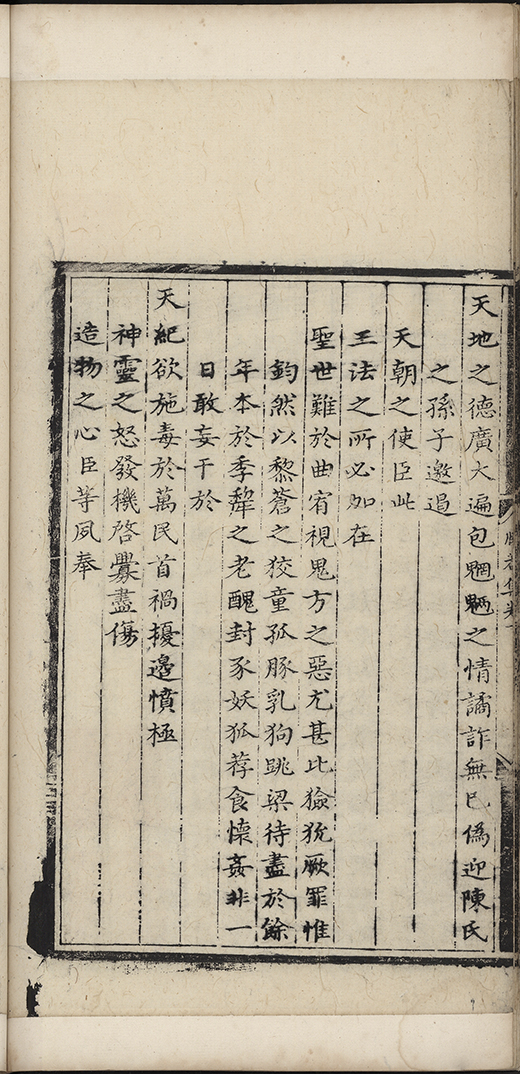 天地之德廣大遍包魍魎之情譎詐無已偽迎陳氏
之孫子邀遏
天朝之使臣此
王法之所必加在
聖世難於曲宥視鬼方之惡尤甚比獫狁厥罪惟
鈞然以黎蒼之狡童孤豚乳狗跳梁待盡於餘
年本於季犛之老醜封豕妖狐荐食懷姦非一
日敢妄干於
天紀欲施毒於萬民首禍擾邊憤極
神靈之怒發機啓釁盡傷
造物之心臣等夙奉